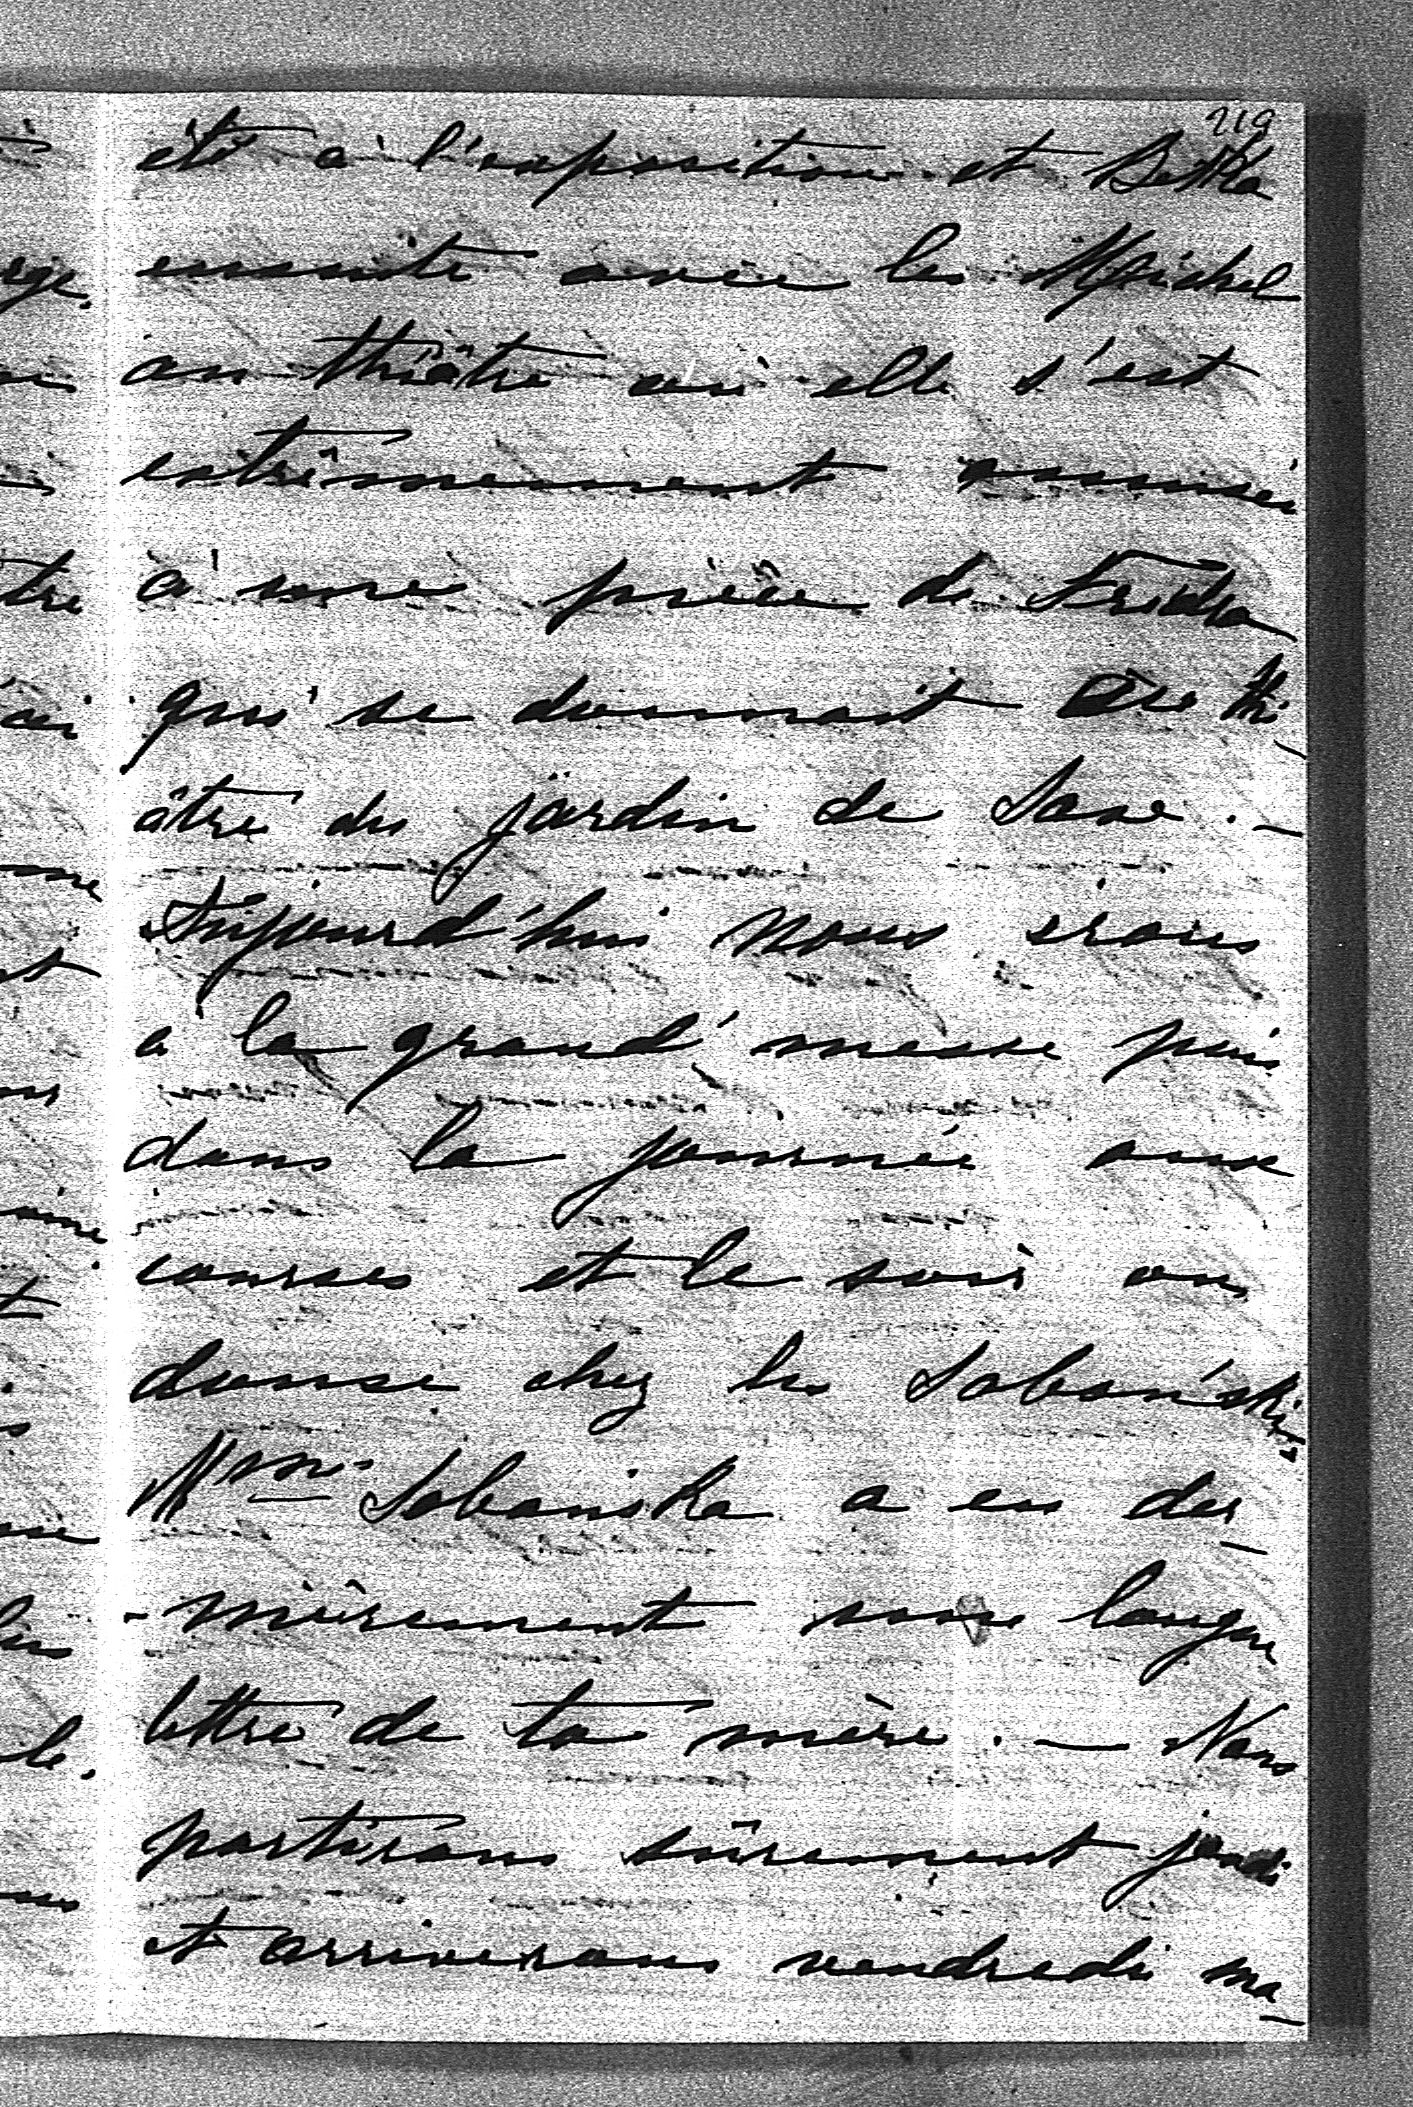 219
été à l'exposition et Betka
ensuite avec les Michel
au théâtre où elle s'est
extrêmement amusée
à une pièce de Fredro
qui se donnait au thé-
âtre du jardin de Saxe. —
Aujourd'hui nous irons
a la grand'messe puis
dans la journée aux
courses et le soir on
danse chez les Sobański.
Mme Sobańska a eu der-
-nièrement une longue
lettre de ta mère. — Nous
partirons sûrement jeudi
et arriverons vendredi ma-